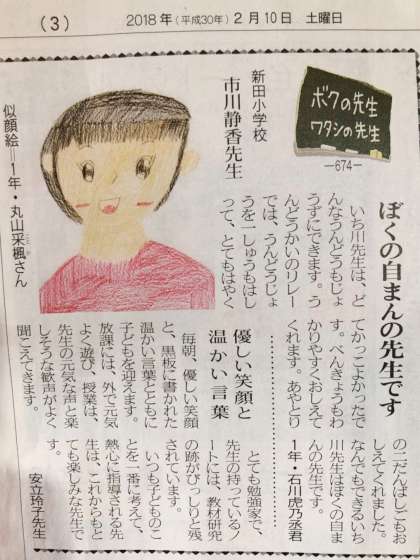 (3)
2018年(平成30年)2月10日 土曜日
ボクの先生
ワタシの先生
―674―
新田小学校
市川静香先生
似顔絵＝1年・丸山采楓さん
ぼくの自まんの先生です
いち川先生は、ど
んなうんどうもじょ
うずにできます。う
んどうかいのリレー
では、うんどうじょ
うを一しゅうもはし
って、とてもはやく
てかっこよかったで
す。べんきょうもわ
かりやすくおしえて
くれます。あやとり
の二だんばしごもお
しえてくれました。
なんでもできるいち
川先生はぼくの自ま
んの先生です。
1年・石川虎乃丞君
優しい笑顔と
温かい言葉
毎朝、優しい笑顔
と、黒板に書かれた
温かい言葉とともに
子どもを迎えます。
放課には、外で元気
よく遊び、授業は、
先生の元気な声と楽
しそうな歓声がよく
聞こえてきます。
とても勉強家で、
先生の持っているノ
ートには、教材研究
の跡がびっしりと残
されています。
いつも子どものこ
とを一番に考えて、
熱心に指導される先
生は、これからもと
ても楽しみな先生で
安立玲子先生